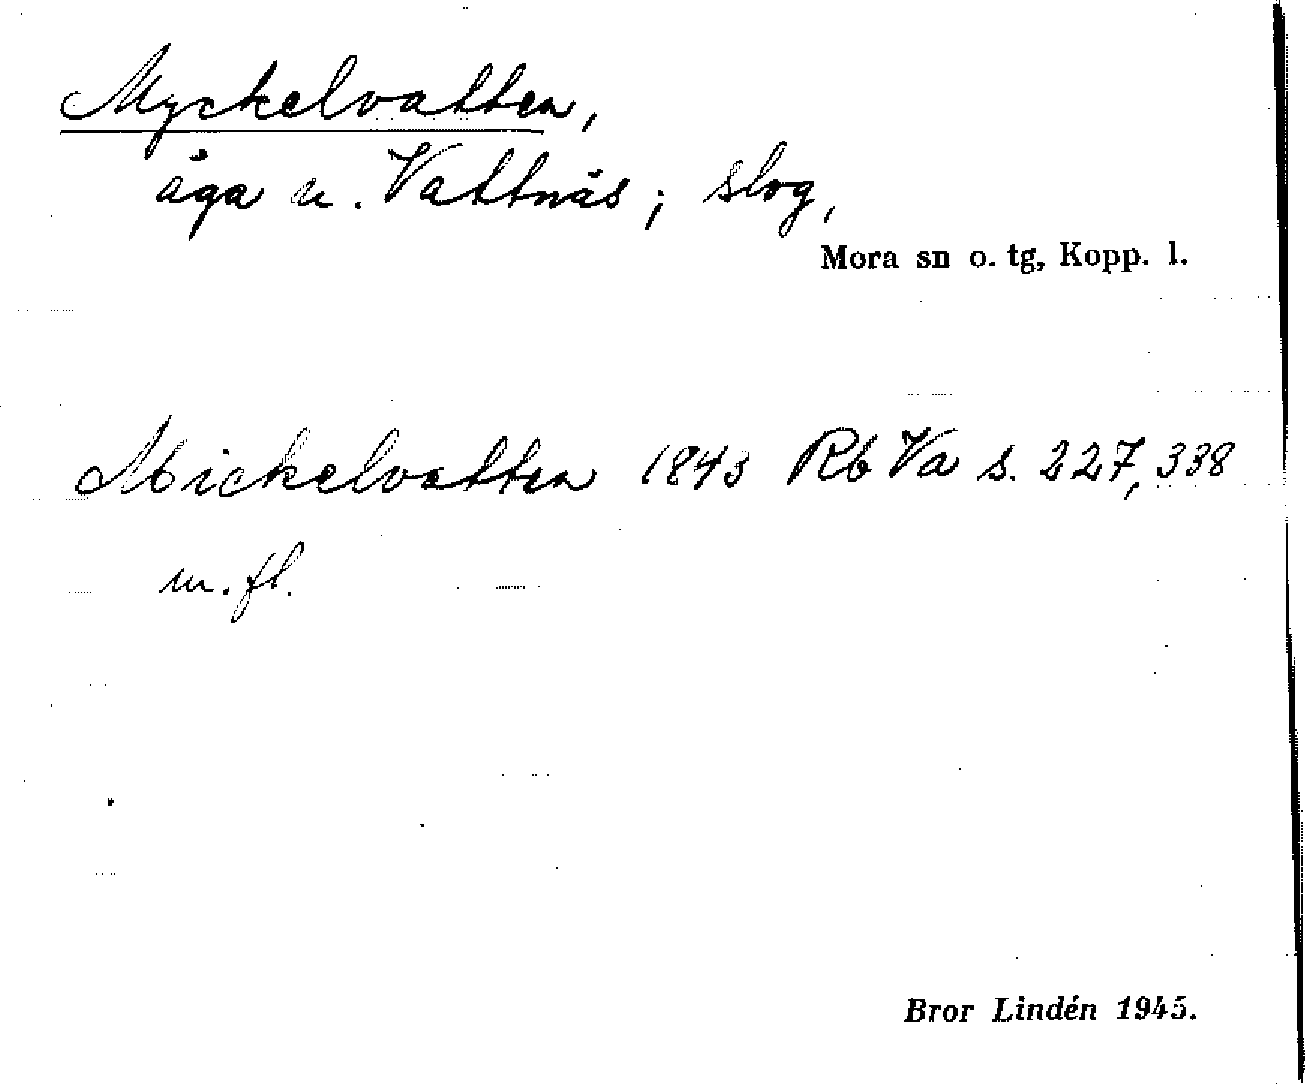 Myckelvatten,
åga u. Vattnäs; slog,
Mora sn o. tg, Kopp. l.
Mickelvatten 1843 Rb Va s. 227, 338
m. fl.
Bror Lindén 1945.